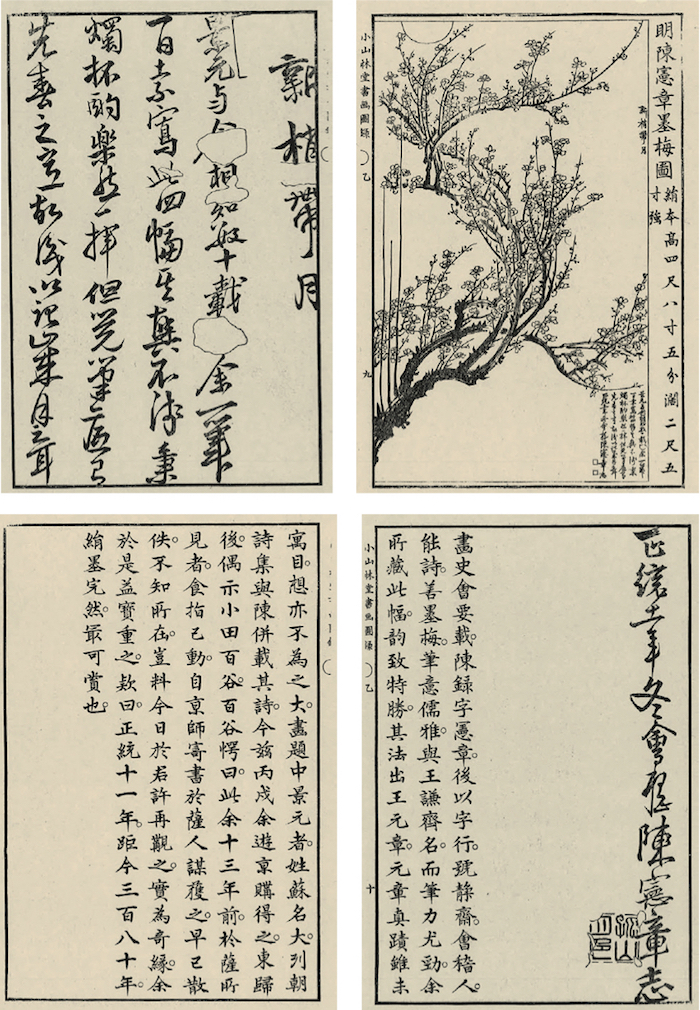 明陳憲章墨梅圖
絹本高四尺八寸五分濶二尺五
寸強
新梢帶月
小山林堂書画圖録 乙 九
新梢帶月
景元与人相知數十載余一筆
一日索寫此四幅其興不淺秉
燭杯酌樂然一揮但覺筆底已
先春之意故識以記歲月云耳
正統十一年冬會稽陳憲章志
畫史會要載陳録字憲章後以字行號靜齋會稽人。
能詩。善墨梅。筆意儒雅。與王謙齊名。而筆力尤勁。余
所藏此幅。韵致特勝。其法出王元章。元章真蹟雖未
小山林堂書画圖録 乙 十
寓目。想亦不為之大。畫題中景元者。姓蘇名大。列朝
詩集與陳併載其詩。今茲丙戌。余遊京購得之。東歸
後。偶示小田百谷。百谷愕曰。此余十三年前。於薩所
見者。食指已動。自京師寄書於薩人謀獲之。早已散
佚。不知所在。豈料今日於君許再觀之。實為奇緣。余
於是益寶重之。欵曰。正統十一年。距今三百八十年。
絹墨完然。最可賞也。